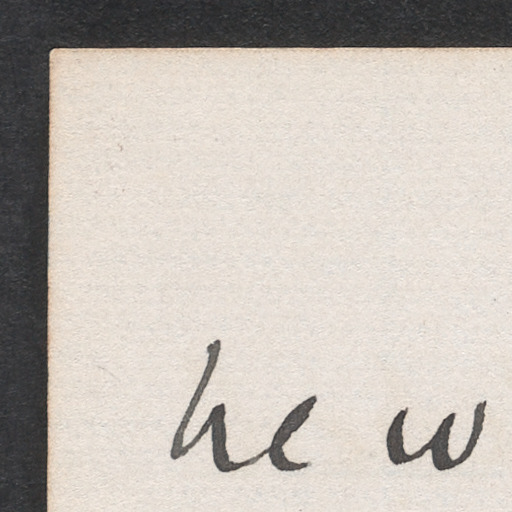 he w